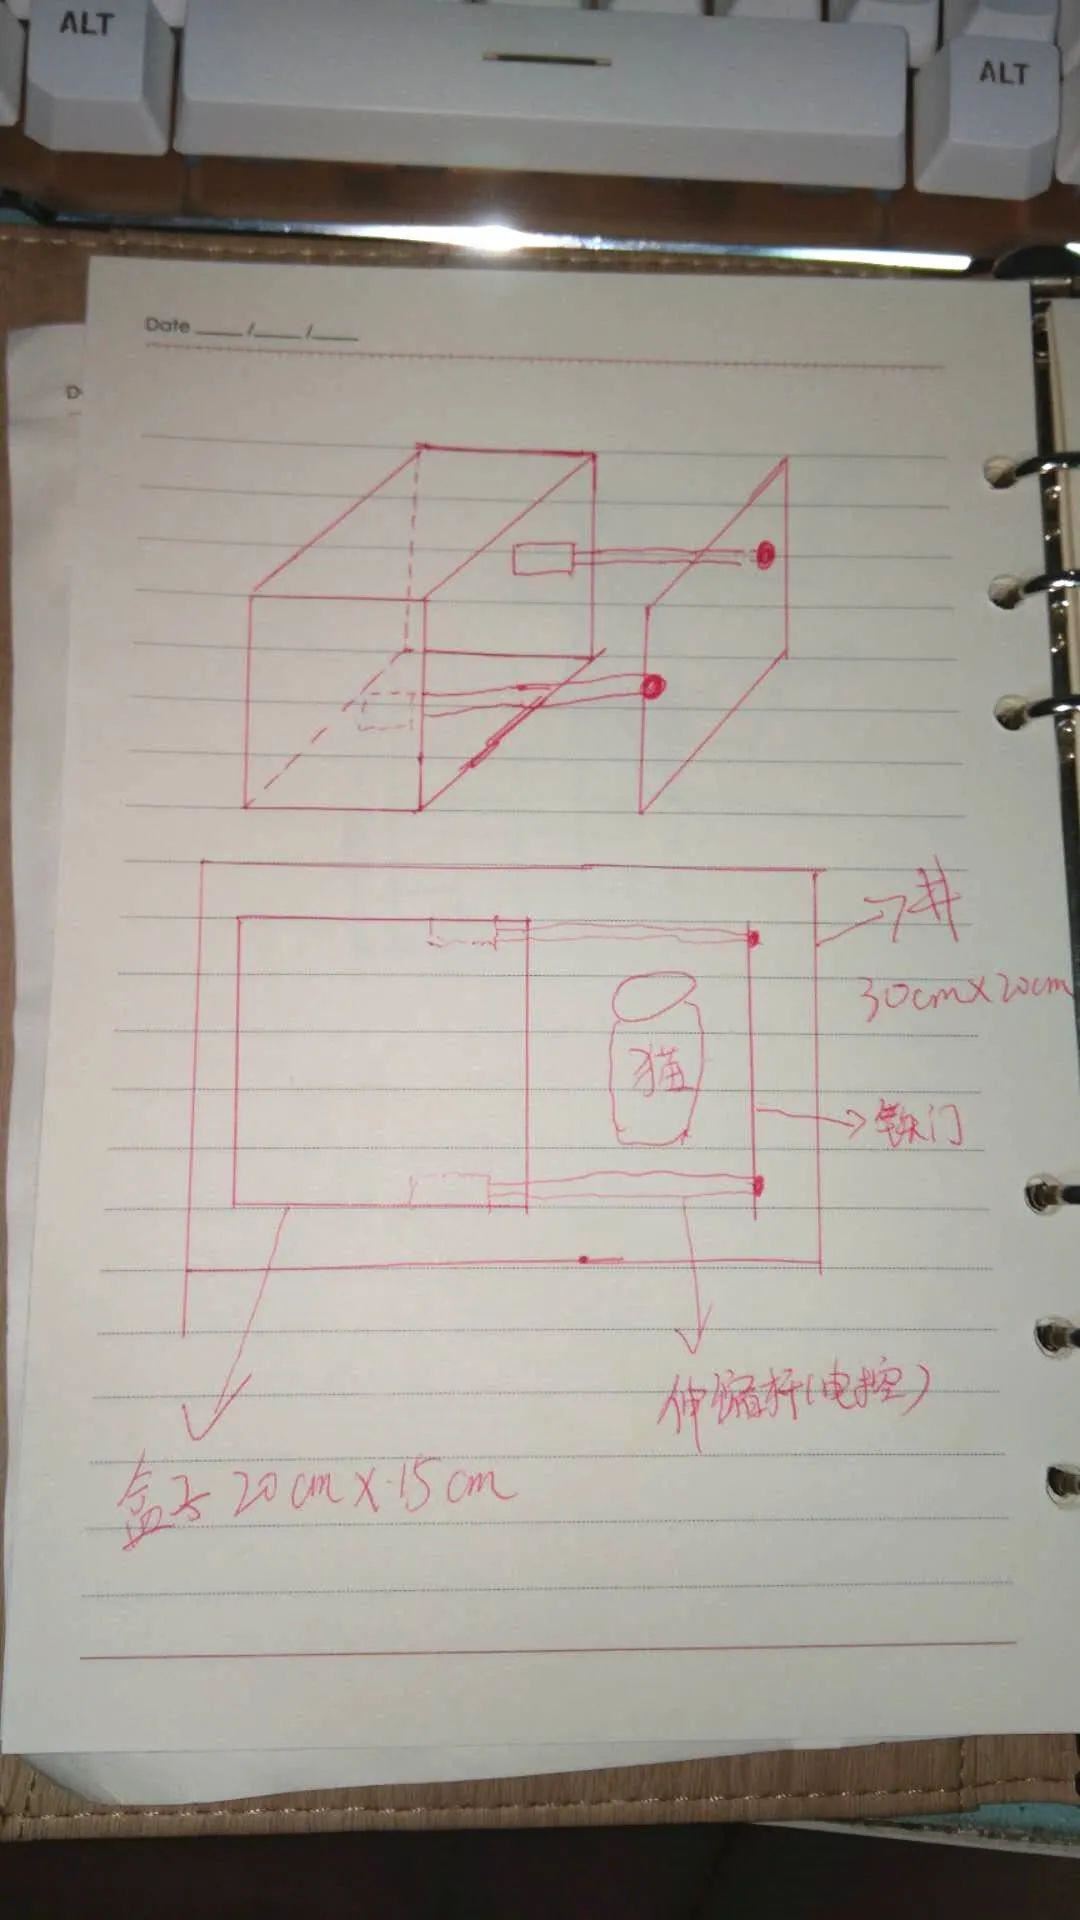 ALT
ALT
Date ___/___/___
D
井
30cm×20cm
猫
铁门
伸缩杆(电控)
盒子 20cm×15cm